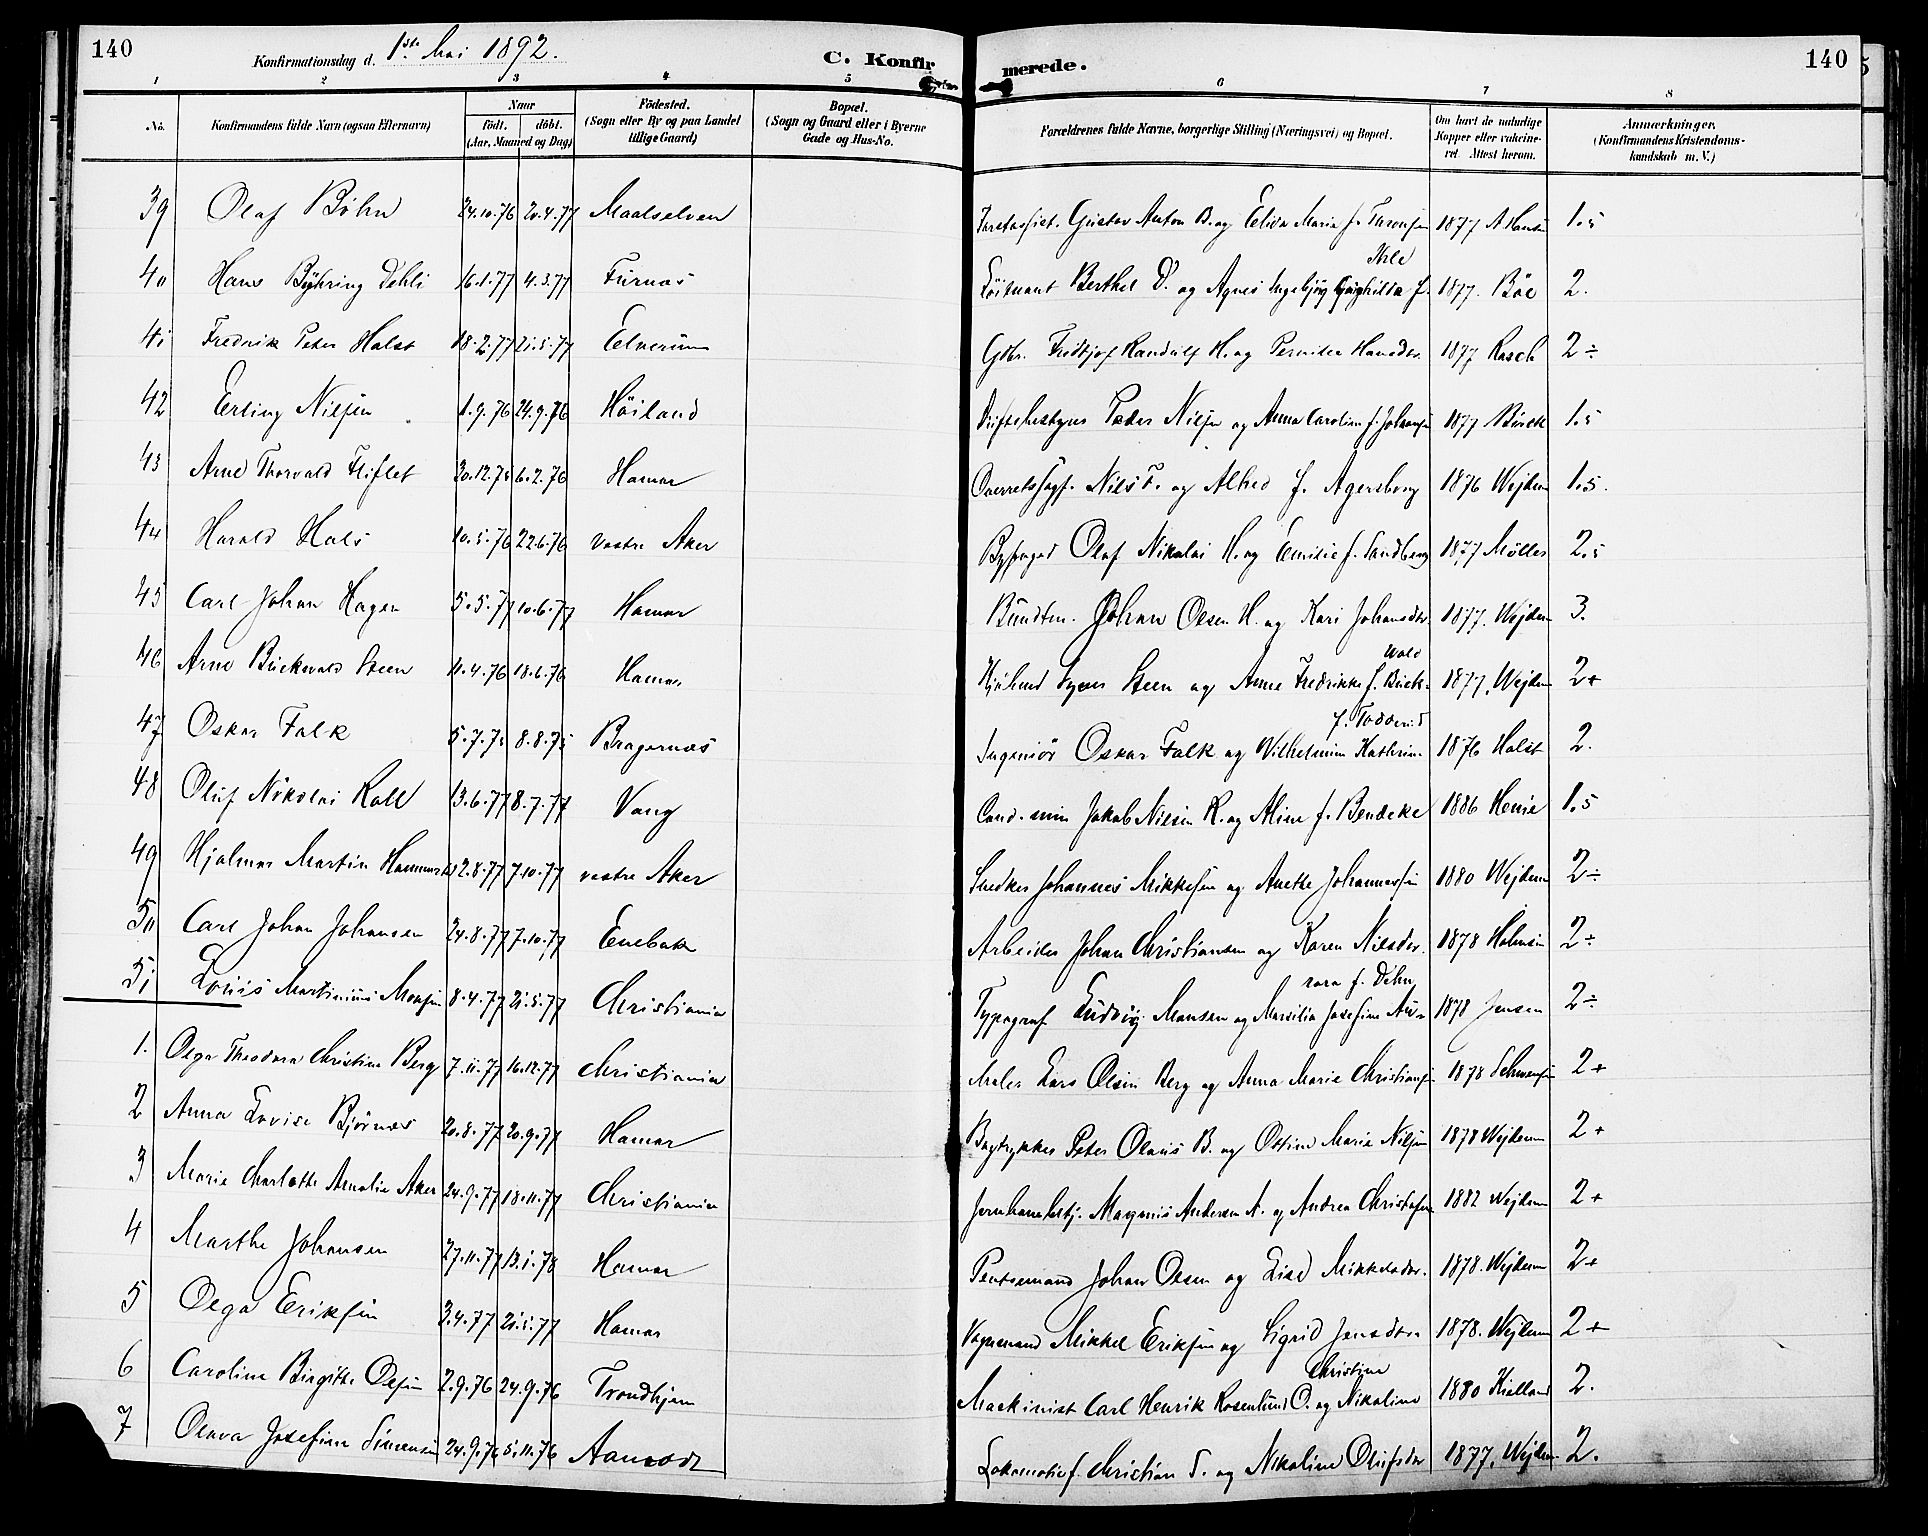 140
Konfirmationsdag d. 1ste Mai 1892.
C. Konfirmerede.
140
1 2 3 4 5 6 7 8
No.
Konfirmandens fulde Navn (ogsaa Efternavn)
Naar
født. døbt.
(Aar, Maaned og Dag)
Fødested.
(Sogn eller By og paa Landet
tillige Gaard)
Bopæl.
(Sogn og Gaard eller i Byerne
Gade og Hus-No.
Forældrenes fulde Navne, borgerlige Stilling (Næringsvei) og Bopæl.
Om havt de naturlige
Kopper eller vakcine-
ret. Attest herom.
Anmærkninger.
(Konfirmandens Kristendoms-
kundskab m. V.)
39 Olaf Bøhn 24.10.76 20.4.77 Maalselven Forstassist. Gustav Anton B. og Elida Maria f. 1877 A Hansen 1.5
Ihle
40 Hans Bøhring Dehli 16.1.77 4.3.77 Furnæs Löitnant Berthel D. og Agnes Ingebjørg f. 1877. Böe 2.
41 Fredrik Peter Holst 18.2.77 21.5.77 Elverum Gbr. Fridtjof Randulf H. og Pernille Hansdr. 1877 Rasch 2÷
42 Erling Nilsen 1.9.76 24.9.76 Höiland Driftsbestyrer Peter Nilsen og Anna Caroline f. Johansen 1877 1.5
43 Arne Thorvald Fliflet 30.12.75 6.2.76 Hamar Overretssagf. Nils F. og Alhed f. Agersborg 1876 Wejdem 1.5.
44 Harald Hals 10.5.76 22.6.76 vestre Aker Byfoged Olaf Nikolai H. og Emilie f. Sandberg 1877 Möller 2.5
45 Carl Johan Hagen 5.5.77 10.6.77 Hamar Johan Olsen H. og Kari Johansdr. 1877. Wejdem 3.
wald
46 Arne Buckwald Steen 11.4.76 18.6.76 Hamar Steen og Anne Fredrikke f. Buck- 1877. Wejdem 2+
f. Todderud
47 Oskar Falk 5.7.75 8.8.75 Bragernæs Ingeniör Oskar Falk og Wilhelmine Kathrine 1876 Holst 2.
48 Oluf Nikolai Roll 13.6.77 8.7.77 Vang Cand. min Jakob Nilsen R. og Aline f. Bendeke 1886 1.5
49 Hjalmar Martin 12.8.77 7.10.77 vestre Aker Snedker Johannes Mikkelsen og Anethe Johannessen 1880 Wejdem 2÷
50 Carl Johan Johansen 24.8.77 7.10.77 Enebak Arbeider Johan Christiansen og Karen Nilsdr. 1878 Holmsen 2÷
rora f. Dehn
51 Louis Martinius Monsen 8.4.77 21.5.77 Christiania Typograf Ludvig Monsen og Marsilia Josefine Au- 1878 Jensen 2÷
1. Olga Theodora Christine Berg 7.11.77 16.12.77 Christiania Maler Lars Olsen Berg og Anna Marie Christiansen 1878 Schwensen 2+
2 Anna Lovise Björnæs 20.8.77 20.9.77 Hamar Bogtrykker Peter Olaus B. og Ottine Marie Nilsen 1878 Wejdem 2+
3 Marie Charlotte Amalie Aker 24.9.77 18.11.77 Christiania Jernbanebetj. Magnus Andersen A. og Andrea Christofersen 1882 Wejdem 2+
4 Marthe Johansen 27.11.77 13.1.78 Hamar Pudsemand Johan Olsen og Lise Mikkelsdr. 1878. Wejdem 2+
5 Olga Eriksen 3.4.77 21.5.77 Hamar Vognmand Mikkel Eriksen og Sigrid Jensdtr. 1878. Wejdem 2+
Christine
6 Caroline Birgitte Olsen 2.9.76 24.9.76 Trondhjem Maskinist Carl Henrik Rosenlund O. og Nikoline 1880 Kielland 2.
7 Olava Josefine Simensen 24.9.76 5.11.76 Aamodt Lokomotivf. Christian S. og Nikoline Olufsdr 1877. Wejdem 2.